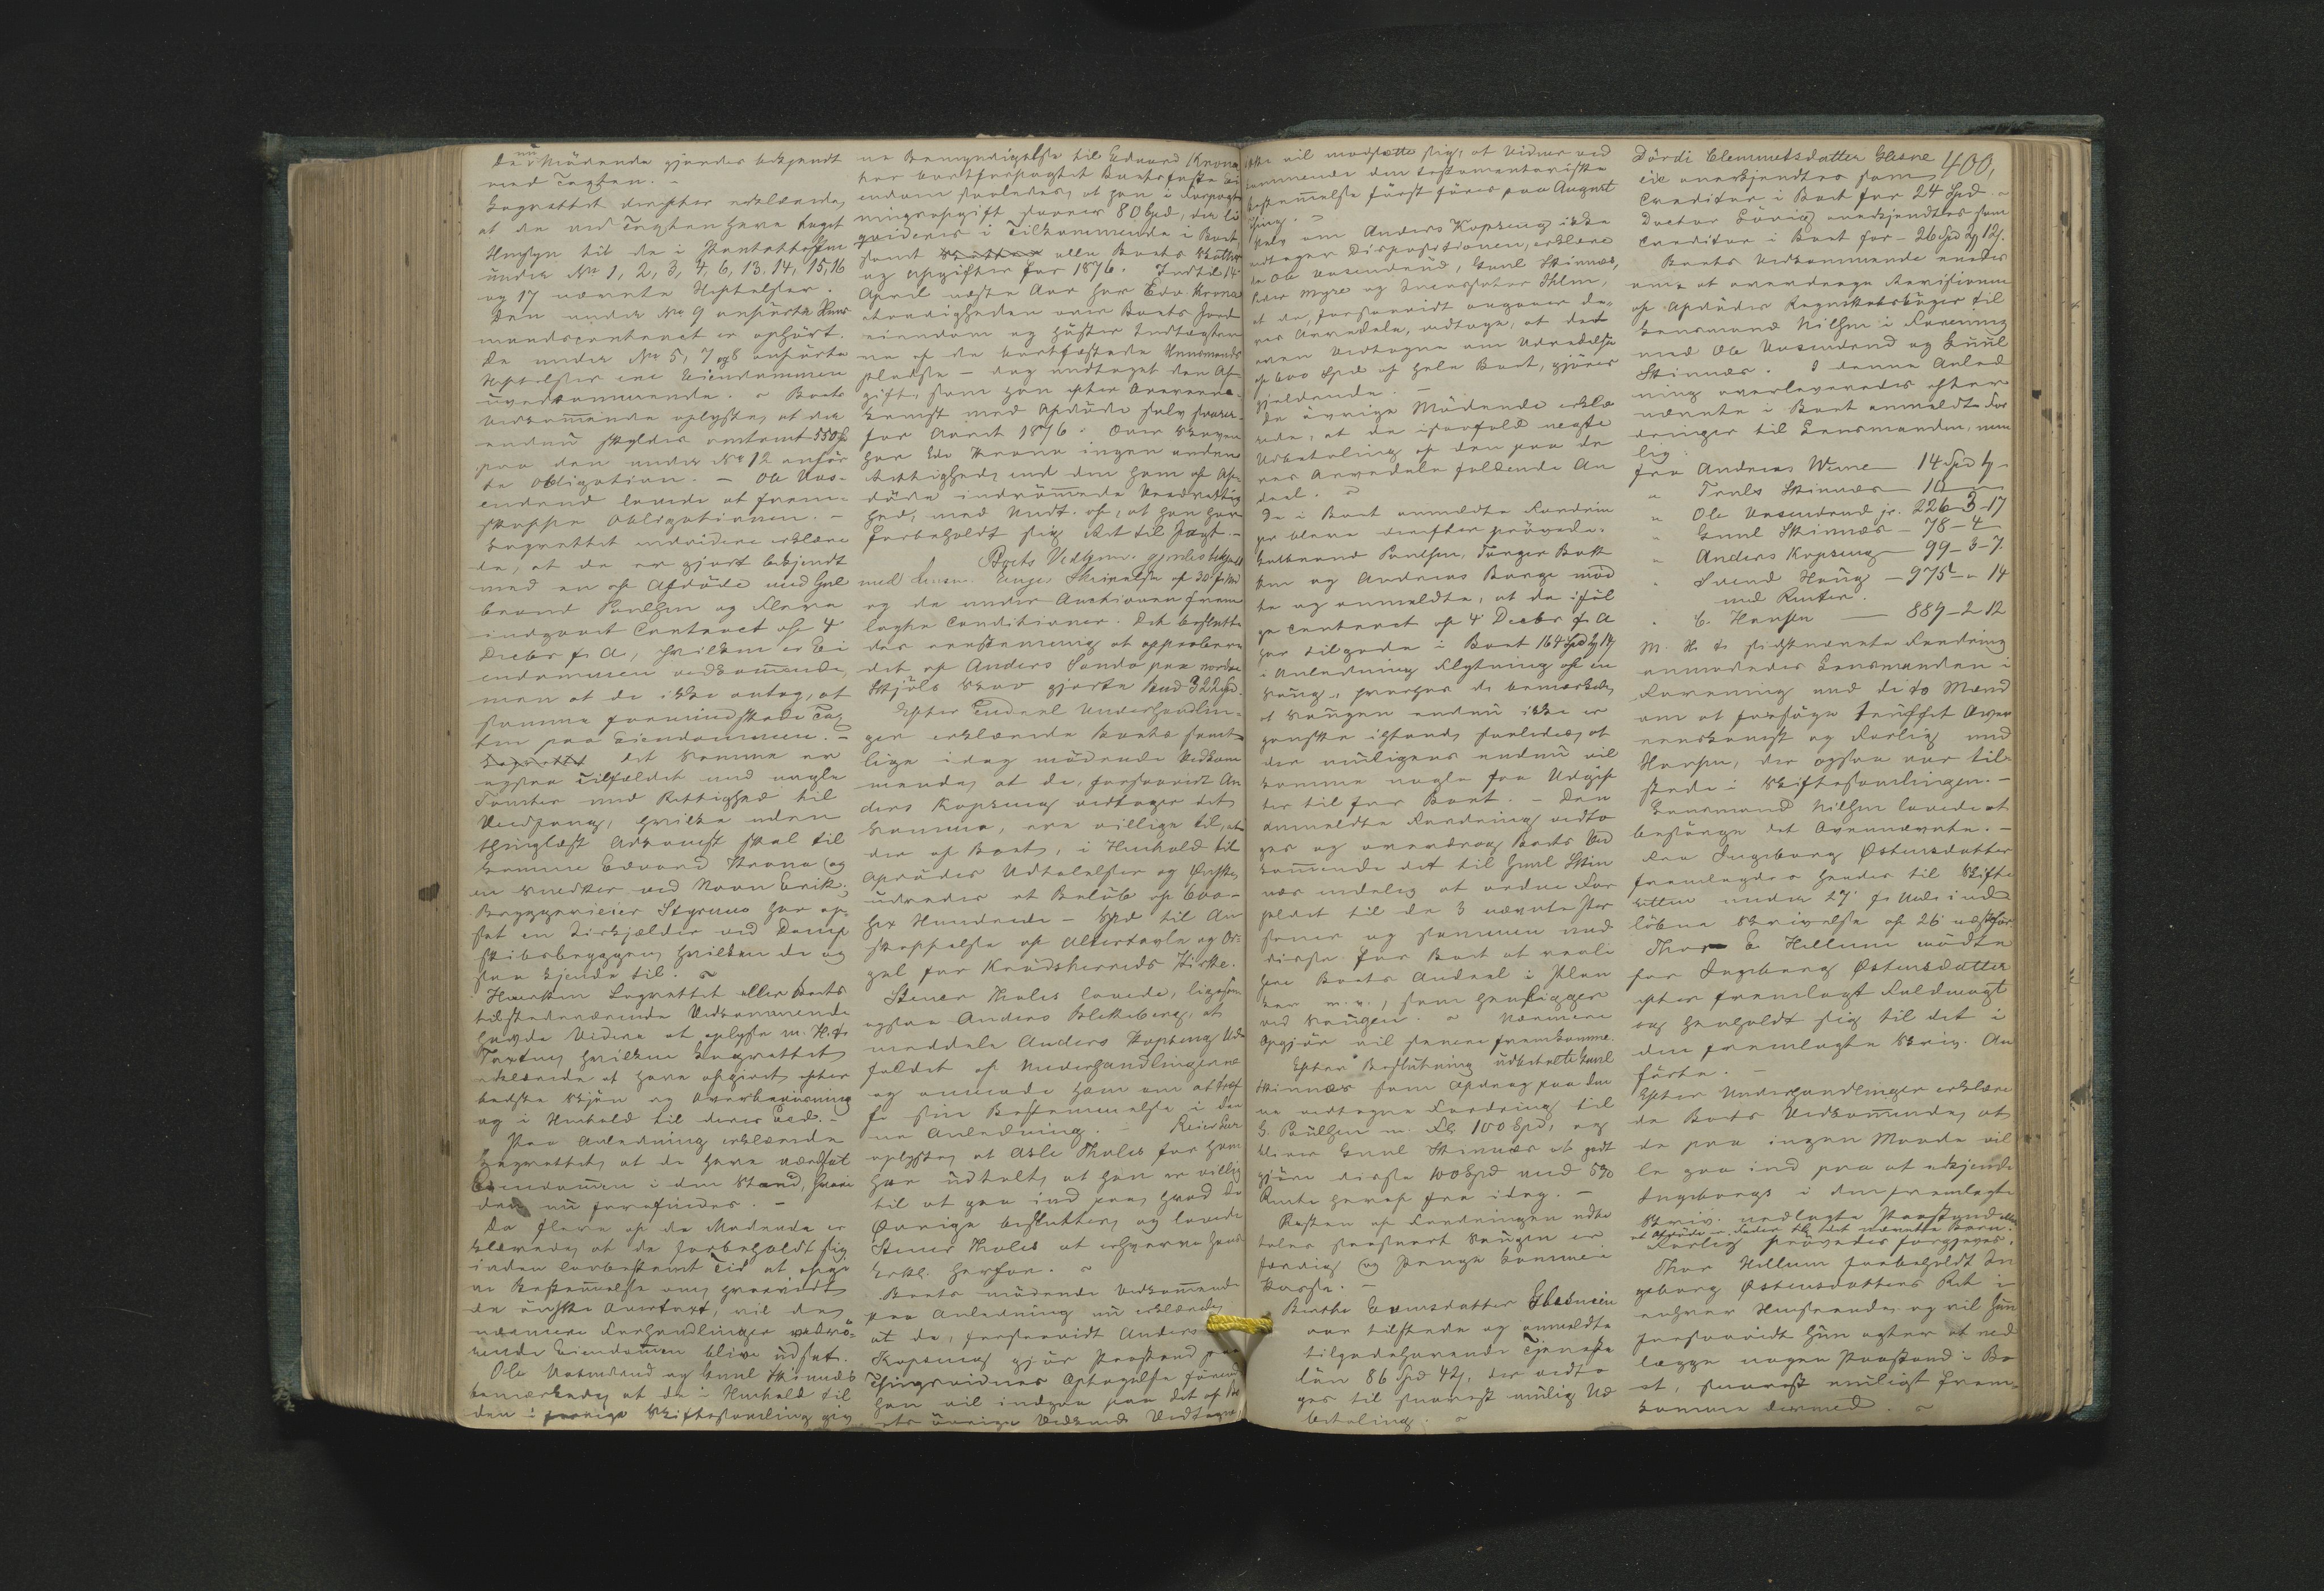 De nu Mødende gjordes bekjendt
med Taxten. –
Lagrettet derefter erklærede,
at de ved Taxten have taget
Hensyn til de i Pantattesten
under No 1, 2, 3, 4, 6, 13, 14, 15, 16
og 17 nævnte Heftelser.
Den under No 9 anførte
mandscontract er ophørt.
De under No 5, 7 og 8 anførte
Heftelser ere Eiendommen
uvedkommende. – Boets
Vedkommende oplyste, at der
endnu skyldes omtrent 550
paa den under No 12 anfør
te Obligation. – Ole Vas-
endrud lovede at frem-
skaffe Obligationen. –
Lagrettet endvidere erklære
de, at de er gjort bekjendt
med en af Afdøde med Gul
brand Paulsen og Flere
indgaaet Contract af 4
Decbr f. A., hvilken er Ei
endommen vedkommende,
men at de ikke antog, at
samme formindskede Tax
ten paa Eiendommen. –
Det Samme er
ogsaa Tilfældet med nogle
Tomter med Rettighed til
hvilke uden
thinglæst Adkomst skal til
komme Edvard Krona og
en Snedker ved Navn Erik.
Bryggerieier Styrmo har op-
sat en Kiskjælder ved Damp
skibsbryggen, hvilken de og
saa kjende til. –
Hverken Lagrettet eller Boets
tilstedeværende Vedkommende
havde Videre at oplyse m. H. t.
Taxten, hvilken Lagrettet
erklærede at have afgivet efter
bedste Skjøn og Overbeviisning
og i Henhold til deres Eed. –
Paa Anledning erklærede
Lagrettet, at de have værdsat
Eiendommen i den Stand, hvori
den nu forefindes. –
Da flere af de Mødende er
klærede, at de forbeholdt sig
inden lovbestemt Tid at afgi
ve Bestemmelse om, hvorvidt
de ønske Overtaxt, vil de
nærmere Forhandlinger vedrø-
rende Eiendommen blive udsat.
Ole Vasendrud og Gunl Skinnes
bemærkede, at de i Henhold til
den i forrige Skiftesamling giv
ne Bemyndigelse til Edvard Krona
har bortforpagtet Boets faste Ei
endom saaledes, at han i Forpagt
ningsafgift svarer 80 Spd, der li
qvideres i Tilkommende i Boet,
samt alle Boets Skatter
og Afgifter for 1876. Indtil 14
April næste Aar har Edv. Krona
Raadigheden over Boets Jord
eiendom og høster Indtægter
ne af de bortfæstede Huusmands
pladse – dog undtaget den Af
gift, som han efter Overeens-
komst med Afdøde selv svarer
for Aaret 1876. Over Skoven
har Edv Krona ingen anden
Rettighed, end den ham af Af
døde indrømmede
hed, med Undt. af, at han har
forbeholdt sig Ret til Jagt. –
Boets Vedkom. gjordes bekjendt
med Skrivelse af 30 f. Md
og de under Auctionen frem
lagte Conditioner. Det beslutte
des eenstemmig at approbere
det af Anders Sando paa nordre
Skjøls Skov gjorte Bud 322 Spd.
Efter Endeel Underhandlin-
ger erklærede Boets samt
lige idag mødende Vedkom
mende, at de, forsaavidt An
ders Kopseng vedtager det
Samme, ere villige til, at
der af Boet, i Henhold til
Afdødes Udtalelser og Ønske,
udredes et Beløb af 600 –
sex Hundrede – Spd til An
skaffelse af Altertavle og Or-
gel for Krødsherreds Kirke.
Stener Tholes lovede, ligesom
ogsaa Anders Blekkeberg, at
meddele Anders Kopseng Ud-
faldet af Underhandlingerne
og anmode ham om at træf
fe sin Bestemmelse i den
ne Anledning. –
oplyste, at Asle Tholes for ham
har udtalt, at han er villig
til at gaa ind paa, hvad de
Øvrige beslutter, og lovede
Stener Tholes at erhverve hans
Erkl. herfor. –
Boets mødende Vedkommende
paa Anledning nu erklærede,
at de, forsaavidt Anders
Kopseng gjør Paastand paa
Thingsvidnes Optagelse førend
han vil indgaa paa det af Bo
ets øvrige Vedkom. Vedtagne,
ikke vil modsætte sig, at Vidner ved
kommende den testamentariske
Bestemmelse først føres paa August
thing. –
Selv om Anders Kopseng ikke
vedtager Dispositionen, erklære
de Ole Vasendrud, Gunl Skinnes,
Peder Myre og
at de, forsaavidt angaaer de-
res Arvedele, vedtage, at det
oven Vedtagne om Udredelse
af 600 Spd af hele Boet, gjøres
gjældende. –
De øvrige Mødende erklæ
rede, at de isaafald negte
Udbetaling af den paa de
res Arvedele faldende An
deel. –
De i Boet anmeldte Fordrin
ger bleve derefter prøvede.
Gulbrand Paulsen, Torger
ken og Andreas Borge mød
te og anmeldte, at de iføl
ge Contract af 4 Decbr f. A
har tilgode i Boet 164 Spd
i Anledning Flytning af en
Saug, hvorhos de bemærkede,
at Saugen endnu ikke er
ganske istand, saaledes, at
der muligens endnu vil
komme nogle faa Udgif
ter til for Boet. – Den
anmeldte Fordring vedto
ges og overdrog Boets Ved
kommende det til Gunl Skin
nes endelig at ordne For
holdet til de 3 nævnte Per
soner og sammen med
disse for Boet at reali
sere Boets Andeel i Plan
ker m. v., som henligger
ved Saugen. – Nærmere
Opgjør vil senere fremkomme.
Efter Beslutning udbetalte Gunl
Skinnes som Afdrag paa den
ne vedtagne Fordring til
G. Paulsen m. Fl. 100 Spd, og
bliver Gunl Skinnes at godt
gjøre disse 100 Spd med 5%
Rente heraf fra idag. –
Resten af Fordringen udbe
tales saasnart Saugen er
færdig og Penge komme i
Kasse. –
Berthe Evensdatter Glesneeie
var tilstede og anmeldte
tilgodehavende Tjeneste
løn 86 Spd 42 , der vedto
ges til snarest mulig Ud
betaling. –
400,
Dordi Clemmetsdatter Glesne
eie anerkjendtes som
Creditor i Boet for 24 Spd. –
Doctor anerkjendtes som
Creditor i Boet for – 26 Spd 2 12 .
Boets Vedkommende enedes
om at overdrage Revisionen
af Afdødes Regnskabsbøger til
Lensmand Nilsen i Forening
med Ole Vasendrud og Gunl
Skinnes. I denne Anled
ning overleveredes efter
nævnte i Boet anmeldte For
dringer til Lensmanden, nem
lig:
fra Andreas 14 Spd
" Truls Skinnes – 10
" Ole Vasendrud jr. 226 – 3 – 17
" Gunl Skinnes – 78 – 4
" Anders Kopseng 99 – 3 – 7
" Svend Haug – 975 – " 14
med Renter.
" C. Hansen – 889 – 2 – 12
M. H. t. sidstnævnte Fordring
anmodedes Lensmanden i
Forening med de to Mænd
om at forsøge truffet Over
eenskomst og Forlig med
Hansen, der ogsaa var til-
stede i Skiftesamlingen. –
Lensmand Nilsen lovede at
besørge det Ovennævnte. –
Fra Ingeborg Østensdatter
fremlagdes hendes til Skifte
retten under 27 f. Md. ind
løbne Skrivelse af 26 næstfør.
Thor E. Hellum mødte
for Ingeborg Østensdatter
efter fremlagt Fuldmagt
og henholdt sig til det i
den fremlagte Skriv. An
førte. –
Efter Underhandlinger erklære
de Boets Vedkommende, at
de paa ingen Maade vil
le gaa ind paa at erkjende
Ingeborgs i den fremlagte
Skriv. nedlagte Paastand eller
at Afdøde er Fader til det nævnte Barn.
Forlig prøvedes forgjæves.
Thor Hellum forbeholdt In
geborg Østensdatters Ret i
enhver Henseende, og vil hun
forsaavidt hun agter at ned
lægge nogen Paastand i Bo
et, snarest muligt frem-
komme dermed. –